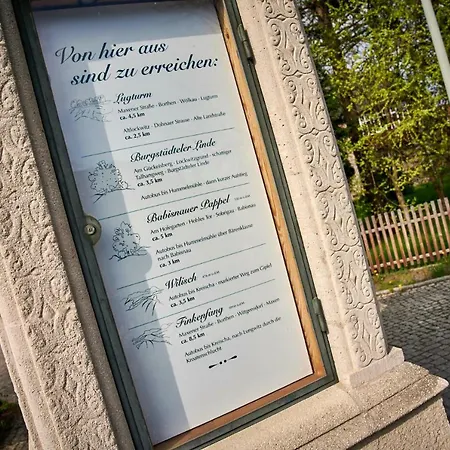 Von hier aus
sind zu erreichen:
Lugturm
Maxener Straße - Borthen - Wölkau - Lugturm
ca. 4,5 km
Altlockwitz - Dohnaer Strasse - Alte Landstraße
ca. 2,5 km
Burgstädteler Linde
Am Galgenberg - Lockwitzgrund - schattiger
Talhangweg - Burgstädteler Linde
ca. 3,5 km
Autobus bis Hummelmühle - dann kurzer Anstieg
Babisnauer Pappel
Am Hofegarten - Hohles Tor - Sobrigau - Babisnau
ca. 5 km
Autobus bis Hummelmühle über Bärenklause
nach Babisnau
ca. 3 km
Wilisch
Autobus bis Kreischa - markierter Weg zum Gipfel
ca. 3,5 km
Finkenfang
Maxener Straße - Borthen - Wittgensdorf - Maxen
ca. 8,5 km
Autobus bis Kreischa, nach Lungwitz durch die
Kroatenschlucht